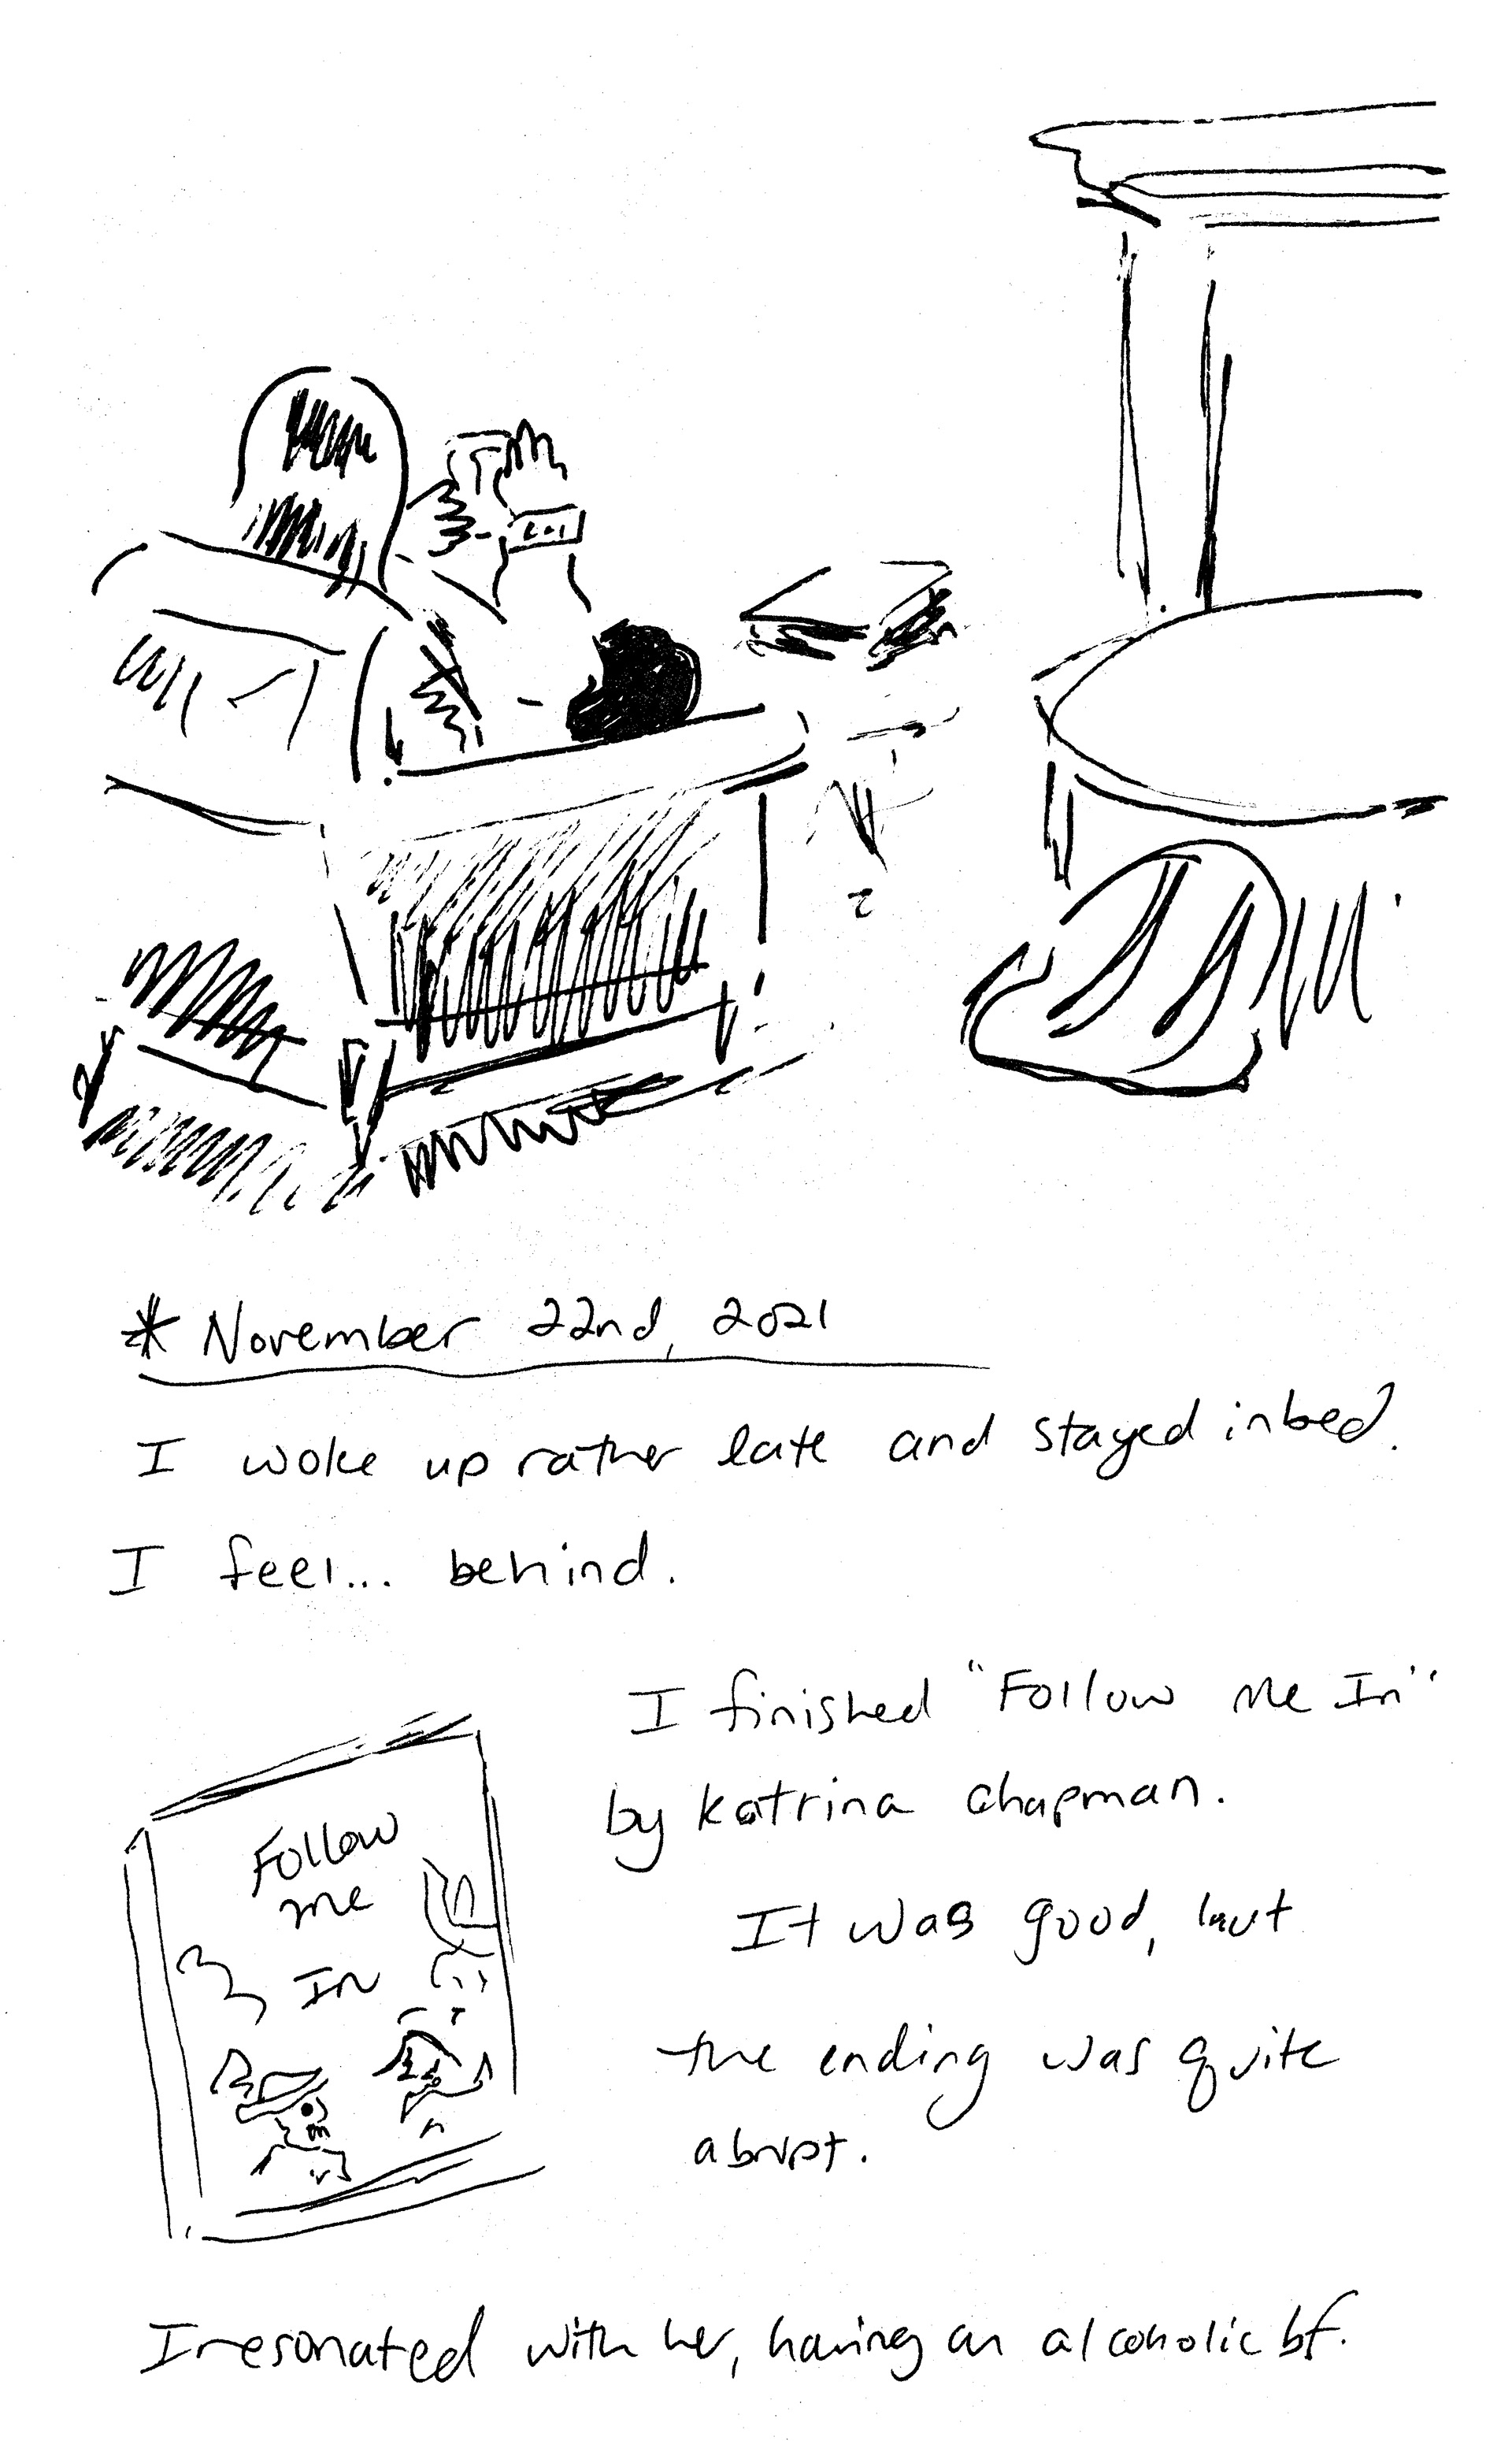 * November 22nd, 2021
I woke up rather late and stayed in bed.
I feel... behind.
I finished "Follow Me In"
by Katrina Chapman.
It was good, but
the ending was quite
abrupt.
Follow
me
In
I resonated with her, having an alcoholic bf.